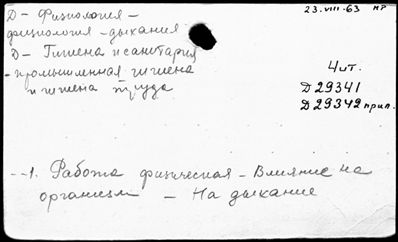 Д - Физиология -
физиология - дыхания
Д - Гигиена и санитария
- промышленная гигиена
и гигиена труда
23.VIII-63 МР
4 ит.
Д 29341
Д 29342 прил.
--1. Работа физическая - Влияние на
организм - На дыхание